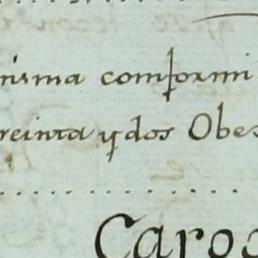 misma conformi
reinta y dos Obes
Caroc